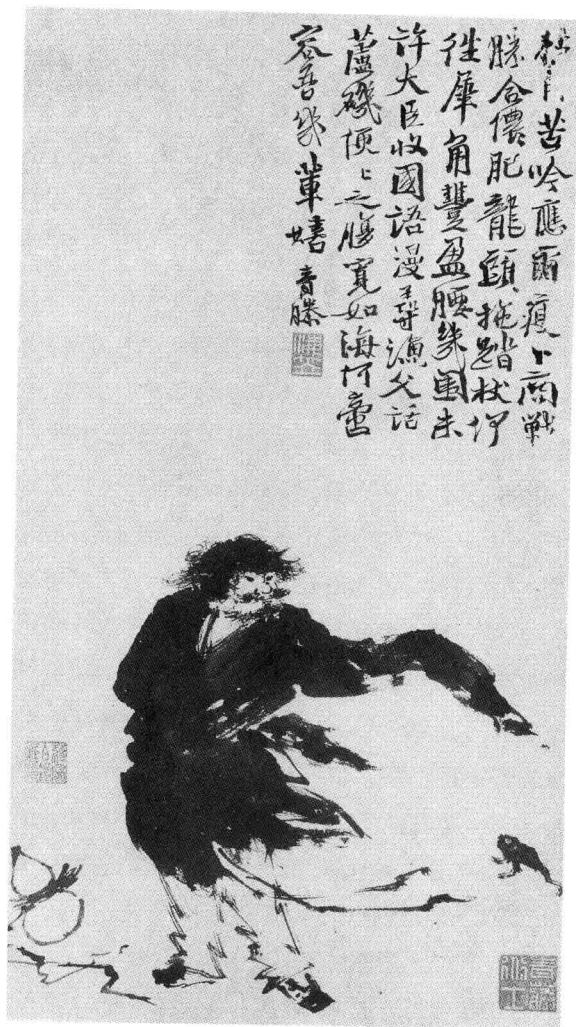 苦吟應爾瘦卜商戰
勝合儂肥龍頭拖踏杖
犀角豐盈腰幾圍未
許大臣收國語漫尋漁父話
蘆磯便〻之腹寬如海何啻
容吾幾輩嬉 青藤